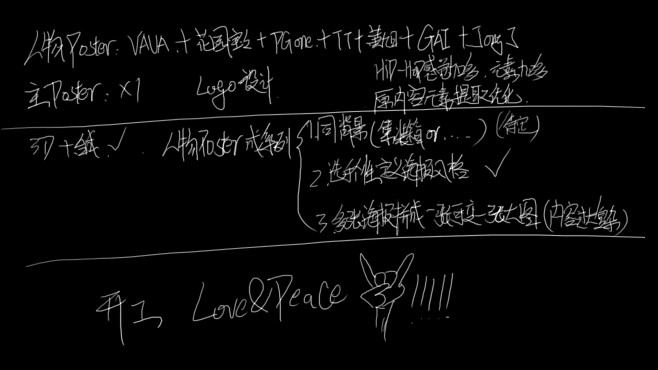 人物Poster: VAVA + 花园宝宝 + PGone + TT + 姜旭 + GAI + Jony J
Hip-Hop感动多, 元素动多
主Poster: x1 Logo设计
原内容元素提取优化
3D + 线 ✓ 人物Poster成系列
1. 同背景 (集装箱or.....) (待定)
2. 选择性定义海报风格 ✓
3. 多张海报拼成一张可变一张大图 (内容过繁杂)
开工 Love&Peace !!!!!